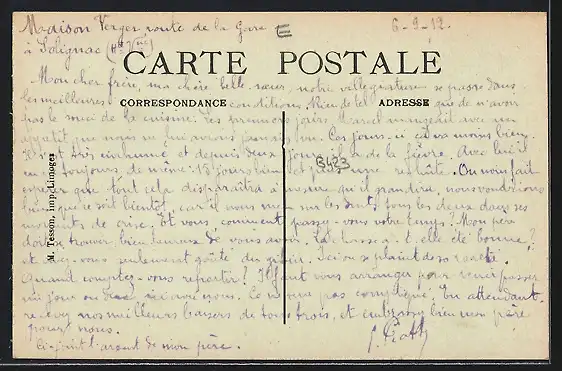 Maison Verger route de la Gare
6-9-12.
à Solignac (Hte Vne)
CARTE POSTALE
Mon cher frère, ma chère belle sœur, notre villégiature se passe dans
les meilleures conditions. Rien de tel que de n'avoir
CORRESPONDANCE
ADRESSE
pas le souci de la cuisine. Les premiers jours, Marcel mangeait avec un
appétit que nous ne lui avions jamais vu. Ces jours-ci ça va moins bien.
Il est très enrhumé et depuis deux jours il a de la fièvre. Avec lui il
en est toujours de même: 15 jours bien et une rechute. On nous fait
B423
espérer que tout cela disparaîtra à mesure qu'il grandira, nous voudrions
bien que ce soit bientôt, car il nous met sur les dents tous les deux dans ses
moments de crise. Et vous, comment passez-vous votre temps? Mon père
doit se trouver bien heureux de vous avoir. La chasse a-t-elle été bonne?
et avez-vous seulement goûté du gibier. Ici on se plaint de sa rareté.
Quand comptez-vous repartir? Il faut vous arranger pour venir passer
un jour ou deux ici avec nous. Ce n'est pas compliqué. En attendant
recevez nos meilleurs baisers de tous trois, et embrasse bien mon père
pour nous.
Ci-joint l'argent de mon père.
M. Tesson, imp. Limoges